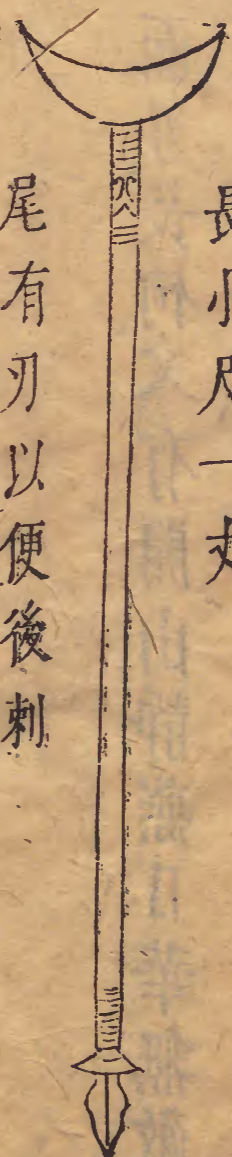 長小尺一丈
尾有刃以便後刺